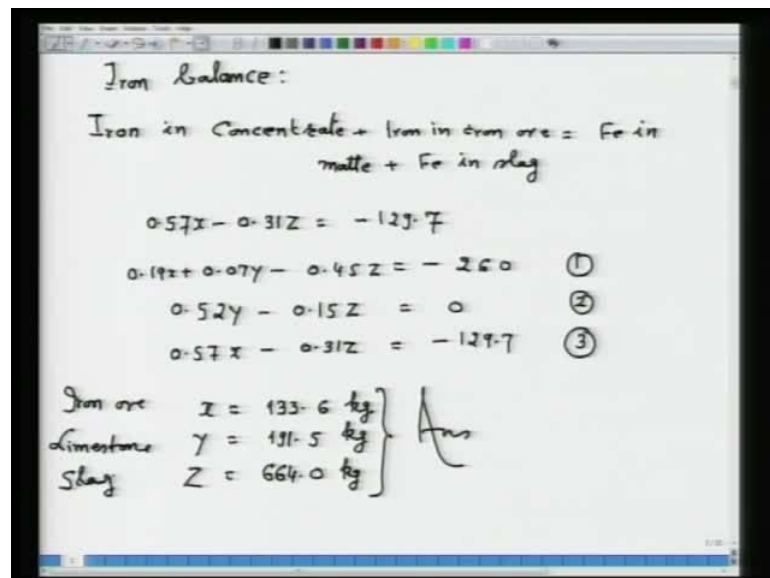 Iron balance:
Iron in Concentrate + Iron in iron ore = Fe in
matte + Fe in slag
0.57x - 0.31Z = -129.7
0.19x + 0.07y - 0.45Z = -260 ①
0.52y - 0.15Z = 0 ②
0.57x - 0.31Z = -129.7 ③
Iron ore x = 133.6 kg
Limestone Y = 191.5 kg } Ans
Slag Z = 664.0 kg